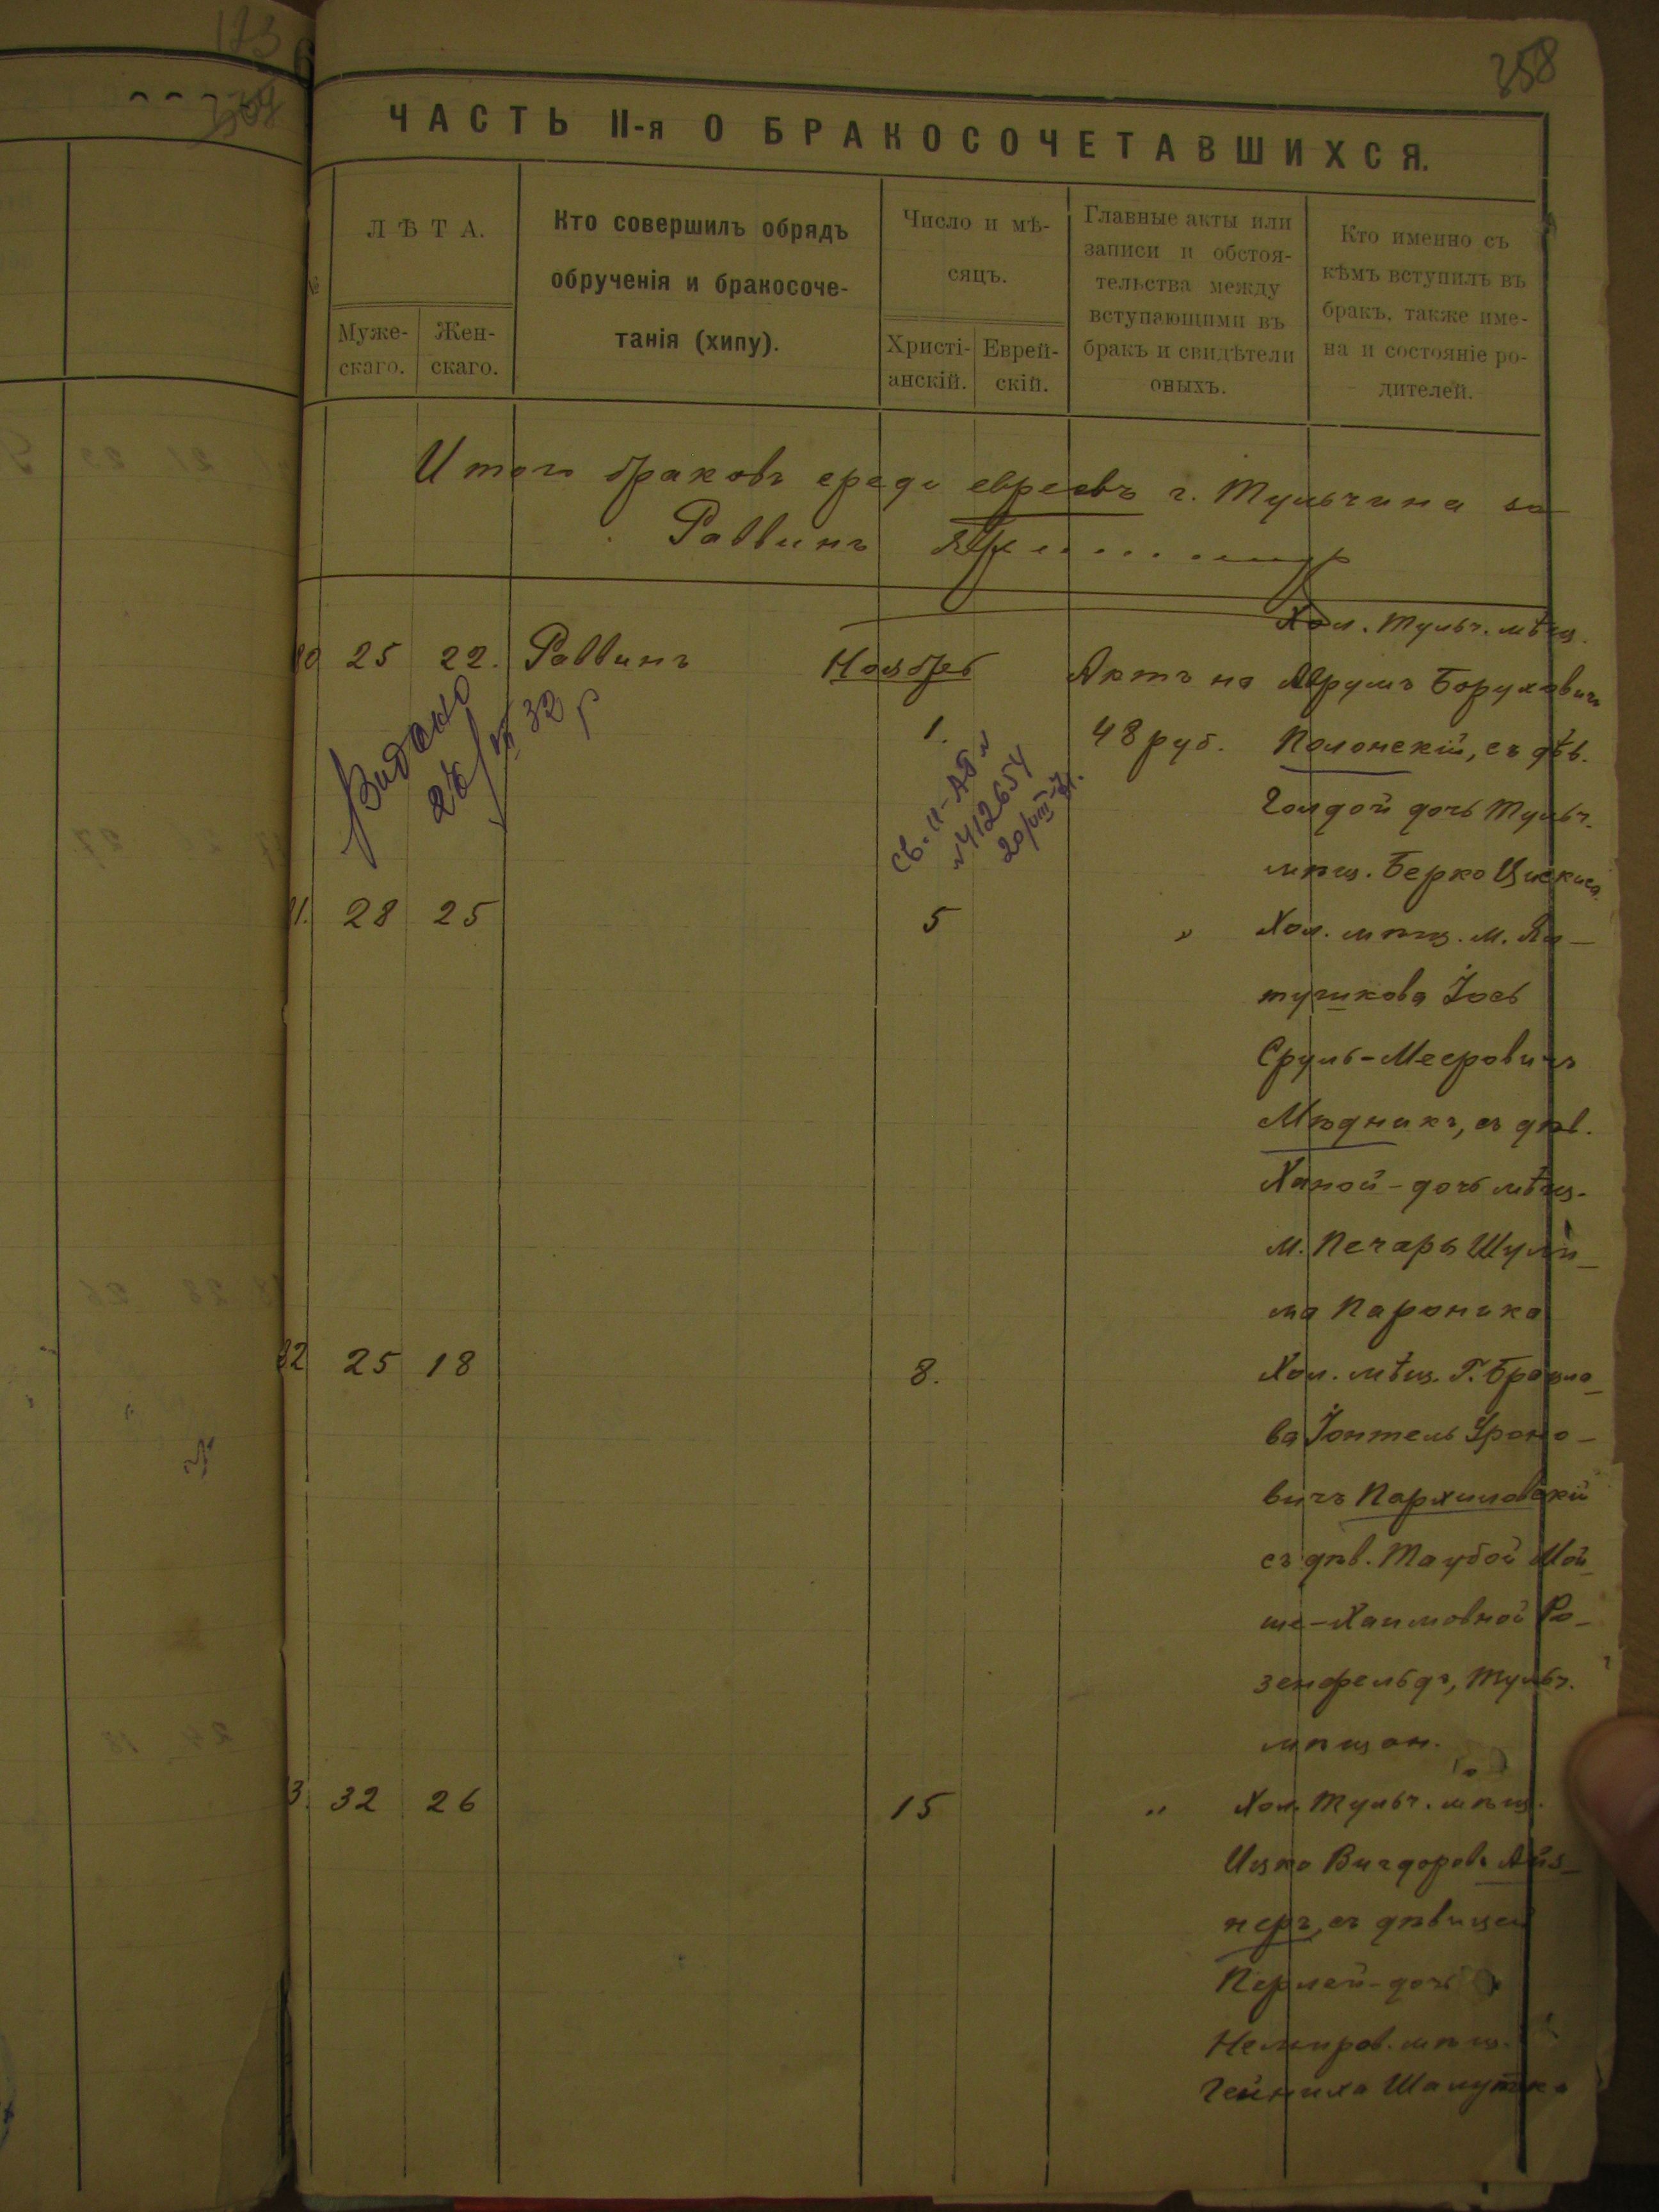 358
ЧАСТЬ II-я О БРАКОСОЧЕТАВШИХСЯ.
№
ЛѢТА.
Муже-
скаго.
Жен-
скаго.
Кто совершилъ обрядъ
обрученія и бракосоче-
танія (хипу).
Число и мѣ-
сяцъ.
Христі-
анскій.
Еврей-
скій.
Главные акты или
записи и обстоя-
тельства между
вступающими въ
бракъ и свидѣтели
оныхъ.
Кто именно съ
кѣмъ вступилъ въ
бракъ, также име-
на и состояніе ро-
дителей.
Итого браковъ среди евреевъ г. Тульчина за
Раввинъ
25 22. Раввинъ Ноябрь
1.
Актъ на
48 руб.
Хол. Тульч. мѣщ.
Аврумъ Борухович
Полонскій, съ дѣв.
Голдой дочь Тульч.
мѣщ. Берко
Видано
32 р
св. II-АБ
№412654
20/VIII
28 25 5 "
Хол. мѣщ. м. Ла-
тушкова Іось
Сруль-Мееровичъ
Мѣдникъ, съ дѣв.
Ханой - дочь мѣщ.
м. Печары Шулы-
ма
25 18 8.
Хол. мѣщ. Г. Брацла-
ва
вичъ Пархиловскій
съ дѣв. Таубой Мой-
ше-Хаимовной Ро-
зенфельдъ, Тульч.
мѣщан.
32 26 15 "
Хол. Тульч. мѣщ.
Ицко Вигдоров. Айз-
неръ, съ дѣвицей
Перлей - дочь
Немиров. мѣщ.